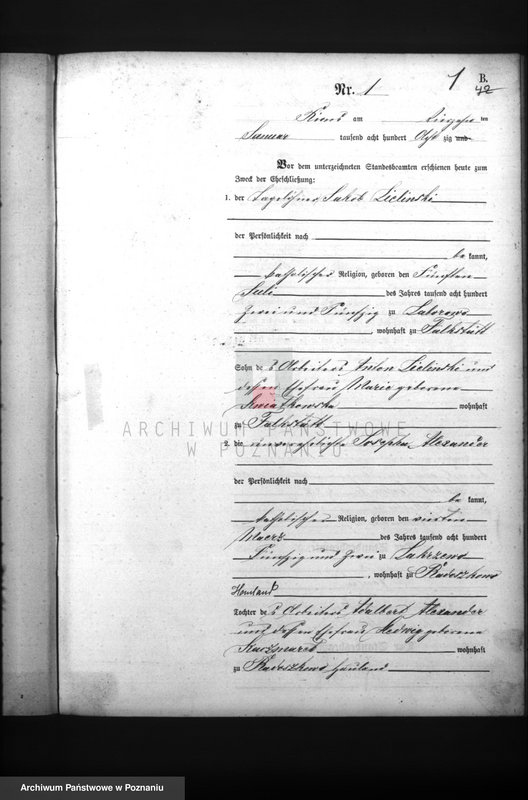 1 B.
Nr. 1 42
am ten
Januar tausend acht hundert Acht zig und
Vor dem unterzeichneten Standesbeamten erschienen heute zum
Zweck der Eheschließung:
1. der Tagelöhner Jakob Zielinski
der Persönlichkeit nach
be kannt,
katholischer Religion, geboren den Fünften
Juli des Jahres tausend acht hundert
zwei und Fünfzig zu
, wohnhaft zu Falkstätt
Sohn des Arbeiters Anton Zielinski und
dessen Ehefrau Marie geborene
Kwiatkowska wohnhaft
zu Falkstätt
2. die unverehelichte Josepha Alexander
der Persönlichkeit nach
be kannt,
katholischer Religion, geboren den vierten
Maerz des Jahres tausend acht hundert
Fünfzig und Zwei zu Zakrzewo
, wohnhaft zu Radoszkowo
Hauland
Tochter des Arbeiters Alexander
und dessen Ehefrau Hedwig geborene
Kaczmarek wohnhaft
zu Radoszkowo Hauland
ARCHIWUM PAŃSTWOWE
W POZNANIU
Archiwum Państwowe w Poznaniu